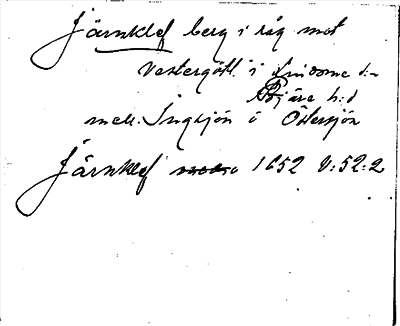 Järnklef berg i råg mot
Vestergötl. i Lindome s:n
Bjäre h:d
mell. Ingsjön o Östersjön
Järnklef 1652 V:52:2